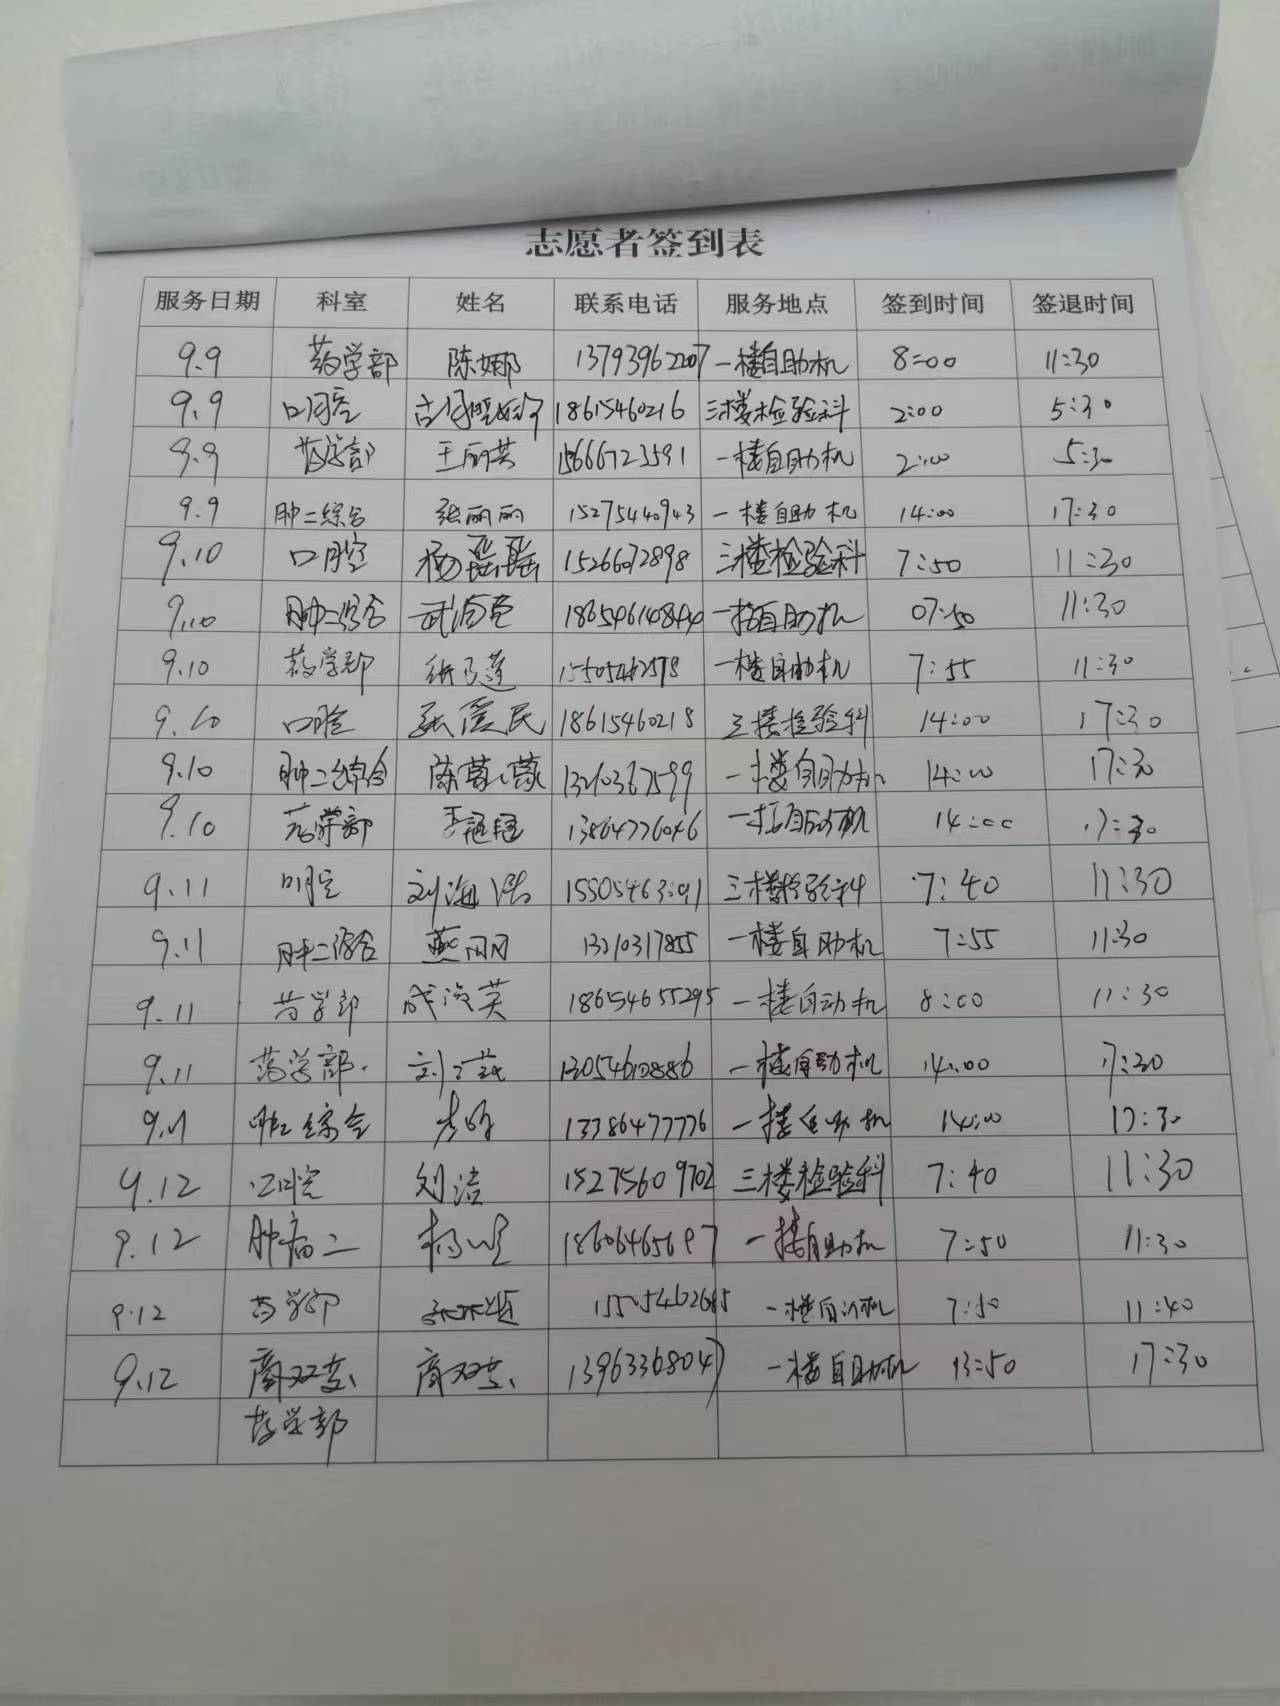 志愿者签到表
服务日期 科室 姓名 联系电话 服务地点 签到时间 签退时间
9.9 药学部 陈娜 13793962207 一楼自助机 8:00 11:30
9.9 口腔 18615460216 三楼检验科 2:00 5:30
9.9 药学部 王丽英 15666723591 一楼自助机 2:00 5:30
9.9 肿二综合 张丽丽 15275440943 一楼自助机 14:00 17:30
9.10 口腔 杨瑶瑶 15266072898 三楼检验科 7:50 11:30
9.10 肿二综合 一楼自助机 07:50 11:30
9.10 药学部 一楼自助机 7:55 11:30
9.10 口腔 张爱民 18615460218 三楼检验科 14:00 17:30
9.10 肿二综合 陈蒙蒙 一楼自助机 14:00 17:30
9.10 药学部 13864776046 一楼自助机 14:00 17:30
9.11 口腔 刘海 三楼检验科 7:40 11:30
9.11 肿二综合 燕冈冈 13210317855 一楼自助机 7:55 11:30
9.11 药学部 18654655295 一楼自动机 8:00 11:30
9.11 药学部 13054610886 一楼自助机 14:00 17:30
9.11 肿二综合 13386477776 一楼自助机 14:00 17:30
9.12 口腔 刘洁 15275609702 三楼检验科 7:40 11:30
9.12 肿瘤二 18606465697 一楼自助机 7:50 11:30
9.12 药学部 一楼自助机 7:50 11:40
9.12 13963368047 一楼自助机 13:50 17:30
药学部